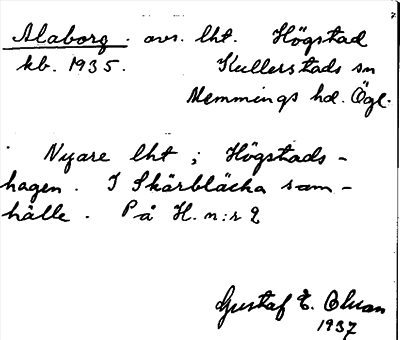 Alaborg. avs. lht. Högstad
kb. 1935. Kullerstads sn
Memmings hd. Ögl.
Nyare lht; Högstads-
hagen. I Skärblacka sam-
hälle. På H. n:r 2
Gustaf E. Olsson
1937